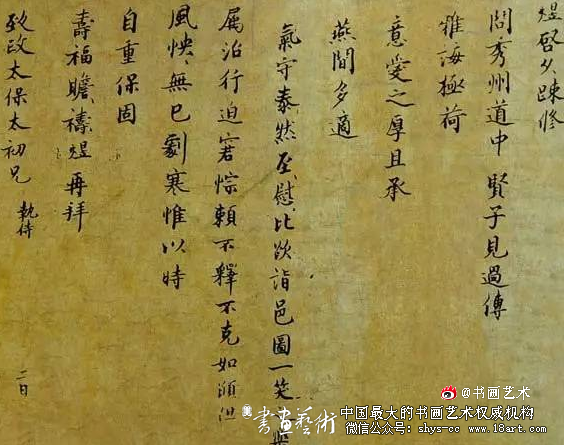 煜啓久疎修
問秀州道中賢子見過傳
雅海極荷
意愛之厚且承
燕間多適
氣守泰然至慰比欲詣邑圖一笑
屬治行迫窘悰賴不釋不克如
風怏無已劇寒惟以時
自重保固
壽福瞻禱煜再拜
致政太保太初兄 執侍
二日
@书画艺术
書畫藝術
中国最大的书画艺术权威机构
微信公众号：shys-cc www.18art.com